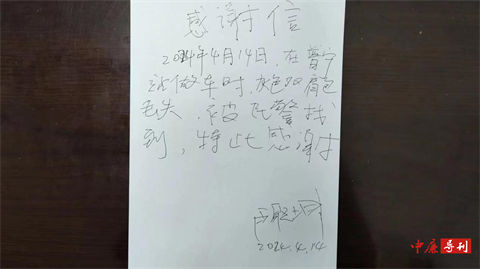 感谢信
2024年4月14日,在普宁
站做车时,灰色双肩包
丢失,被民警找
到,特此感谢
2024.4.14
中廉导刊